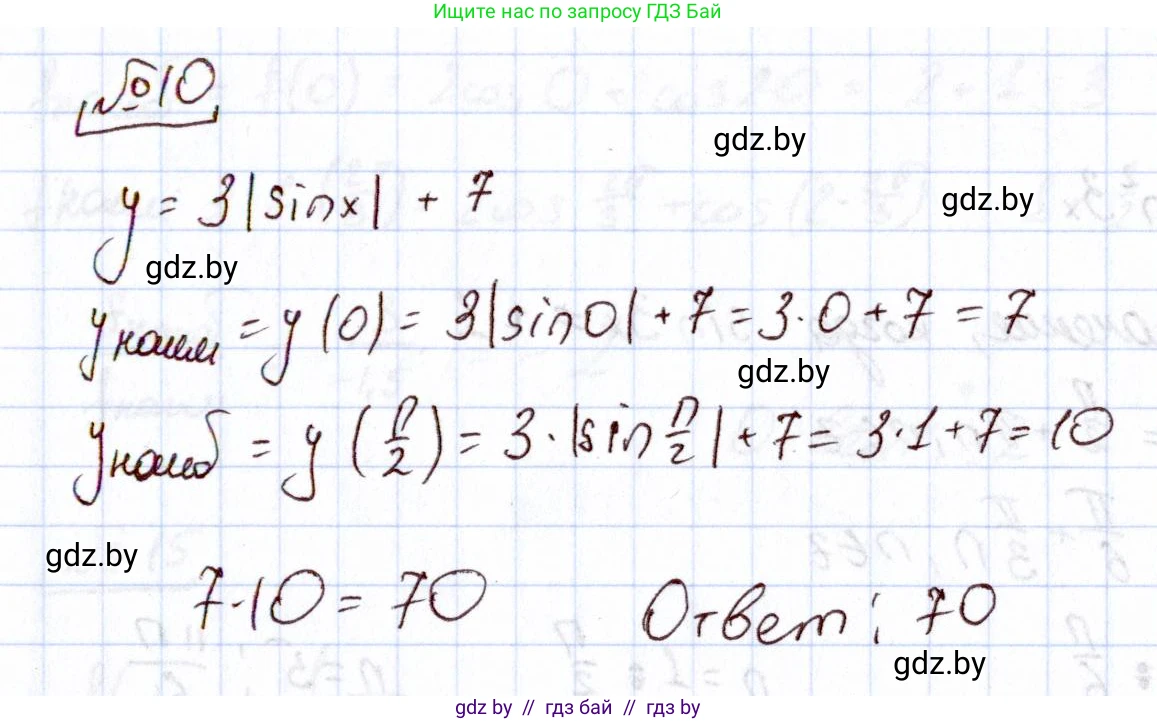 Ищите нас по запросу ГДЗ Бай
№10
gdz.by
y = 3|sinx| + 7
gdz.by
gdz.by
yнаим = y(0) = 3|sin0| + 7 = 3·0 + 7 = 7
gdz.by
yнаиб = y(π/2) = 3·|sin π/2| + 7 = 3·1 + 7 = 10
gdz.by
7·10 = 70
Ответ: 70
gdz.by
gdz by // гдз бай // гдз by